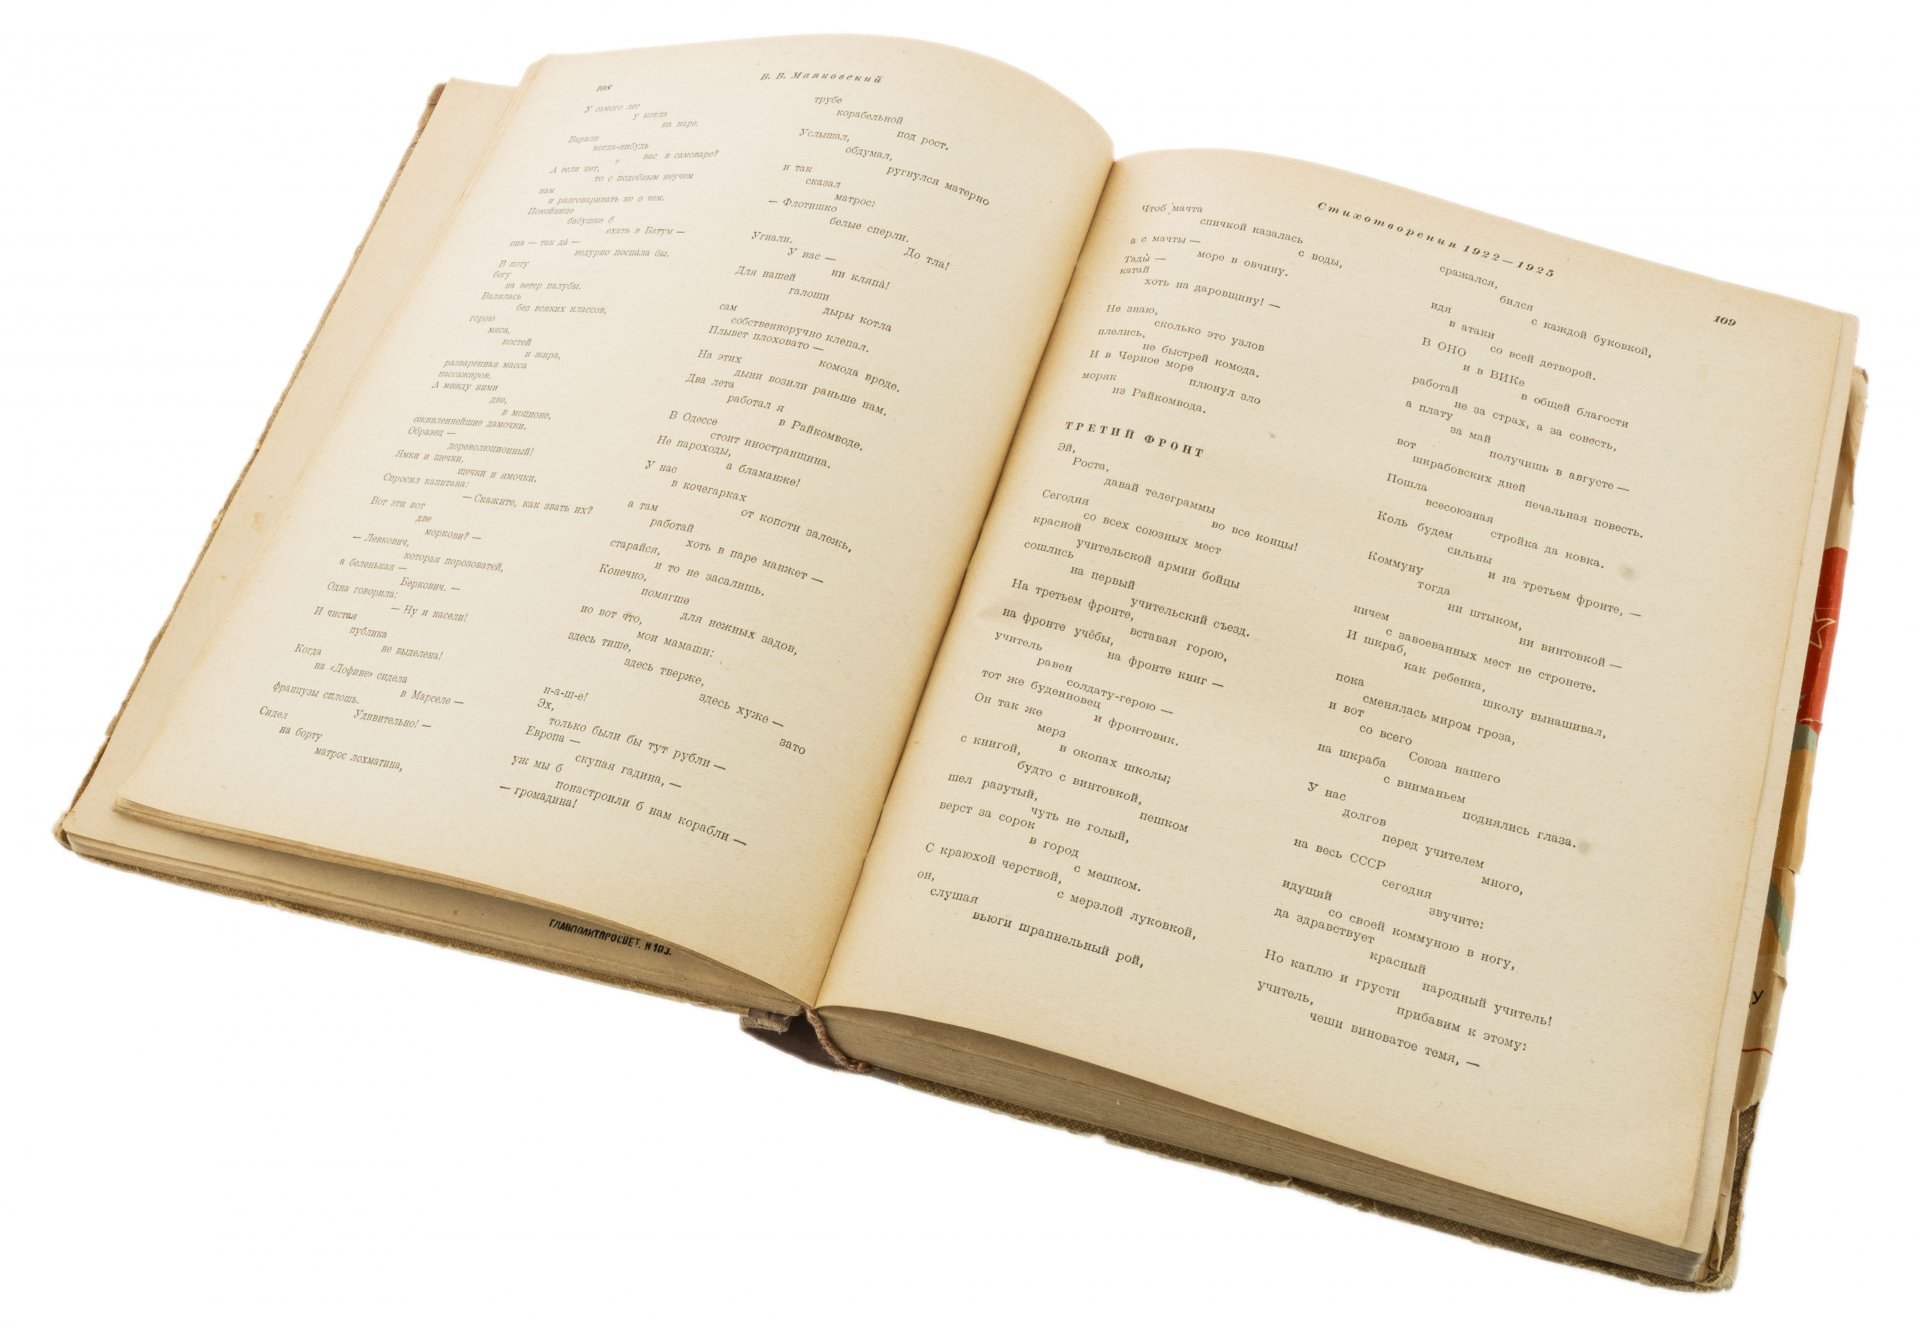 108
В. В. Маяковский
У самого лег
у котла
на наре.
Варили
когда-нибудь
вас в самоваре?
А если нет,
то с подобным неучем
нам
и разговаривать не о чем.
Покойнице
бабушке б
ехать в Батум —
она — так да —
недурно поспала бы.
В поту
бегу
на ветер палубы.
Валялась
без всяких классов,
горою
мяса,
костей
и жира,
разваренная масса
пассажиров.
А между ними
две,
в моционе,
оживленнейшие дамочки.
Образец —
дореволюционный!
Ямки и щечки,
щечки и ямочки.
Спросил капитана:
— Скажите, как звать их?
Вот эти вот
две
моркови? —
— Левкович,
которая порозоватей,
а беленькая —
Беркович. —
Одна говорила:
— Ну и насели!
И чистая
публика
не выделена!
Когда
на «Дофине» сидела
в Марселе —
французы сплошь.
Удивительно! —
Сидел
на борту
матрос лохматина,
трубе
корабельной
под рост.
Услышал,
обдумал,
ругнулся матерно
и так
сказал
матрос:
— Флотишко
белые сперли.
Угнали.
До тла!
У нас —
ни кляпа!
Для нашей
галоши
дыры котла
сам
собственноручно клепал.
Плывет плоховато —
комода вроде.
На этих
дыни возили раньше нам.
Два лета
работал я
в Райкомводе.
В Одессе
стоит иностранщина.
Не пароходы,
а бламанже!
У нас
в кочегарках
от копоти залежь,
а там
работай
хоть в паре манжет —
старайся,
и то не засалишь.
Конечно,
помягше
для нежных задов,
но вот что,
мои мамаши:
здесь тише,
здесь тверже,
здесь хуже —
зато
н-а-ш-е!
Эх,
только были бы тут рубли —
Европа —
скупая гадина, —
уж мы б
понастроили б нам корабли —
— громадина!
ГЛАВПОЛИТПРОСВЕТ. №103.
Стихотворения 1922—1925
109
Чтоб мачта
спичкой казалась
с воды,
а с мачты —
море в овчину.
Тады —
катай
хоть на даровщину! —
Не знаю,
сколько это узлов
плелись,
не быстрей комода.
И в Черное море
плюнул зло
моряк
из Райкомвода.
ТРЕТИЙ ФРОНТ
Эй,
Роста,
давай телеграммы
во все концы!
Сегодня
со всех союзных мест
красной
учительской армии бойцы
сошлись
на первый
учительский съезд.
На третьем фронте,
вставая горою,
на фронте учёбы,
на фронте книг —
учитель
равен
солдату-герою —
тот же буденновец
и фронтовик.
Он так же
мерз
в окопах школы;
с книгой,
будто с винтовкой,
пешком
шел разутый,
чуть не голый,
верст за сорок
в город
с мешком.
С краюхой черствой,
с мерзлой луковкой,
он,
слушая
вьюги шрапнельный рой,
сражался,
бился
с каждой буковкой,
идя
в атаки
со всей детворой.
В ОНО
и в ВИКе
в общей благости
работай
не за страх, а за совесть,
а плату
за май
получишь в августе —
вот
шкрабовских дней
печальная повесть.
Пошла
всесоюзная
стройка да ковка.
Коль будем
сильны
и на третьем фронте, —
Коммуну
тогда
ни штыком,
ни винтовкой —
ничем
с завоеванных мест не стронете.
И шкраб,
как ребенка,
школу вынашивал,
пока
сменялась миром гроза,
и вот
со всего
Союза нашего
на шкраба
с вниманьем
поднялись глаза.
У нас
долгов
перед учителем
много,
на весь СССР
сегодня
звучите:
идущий
со своей коммуною в ногу,
да здравствует
красный
народный учитель!
Но каплю и грусти
прибавим к этому:
учитель,
чеши виноватое темя, —
У